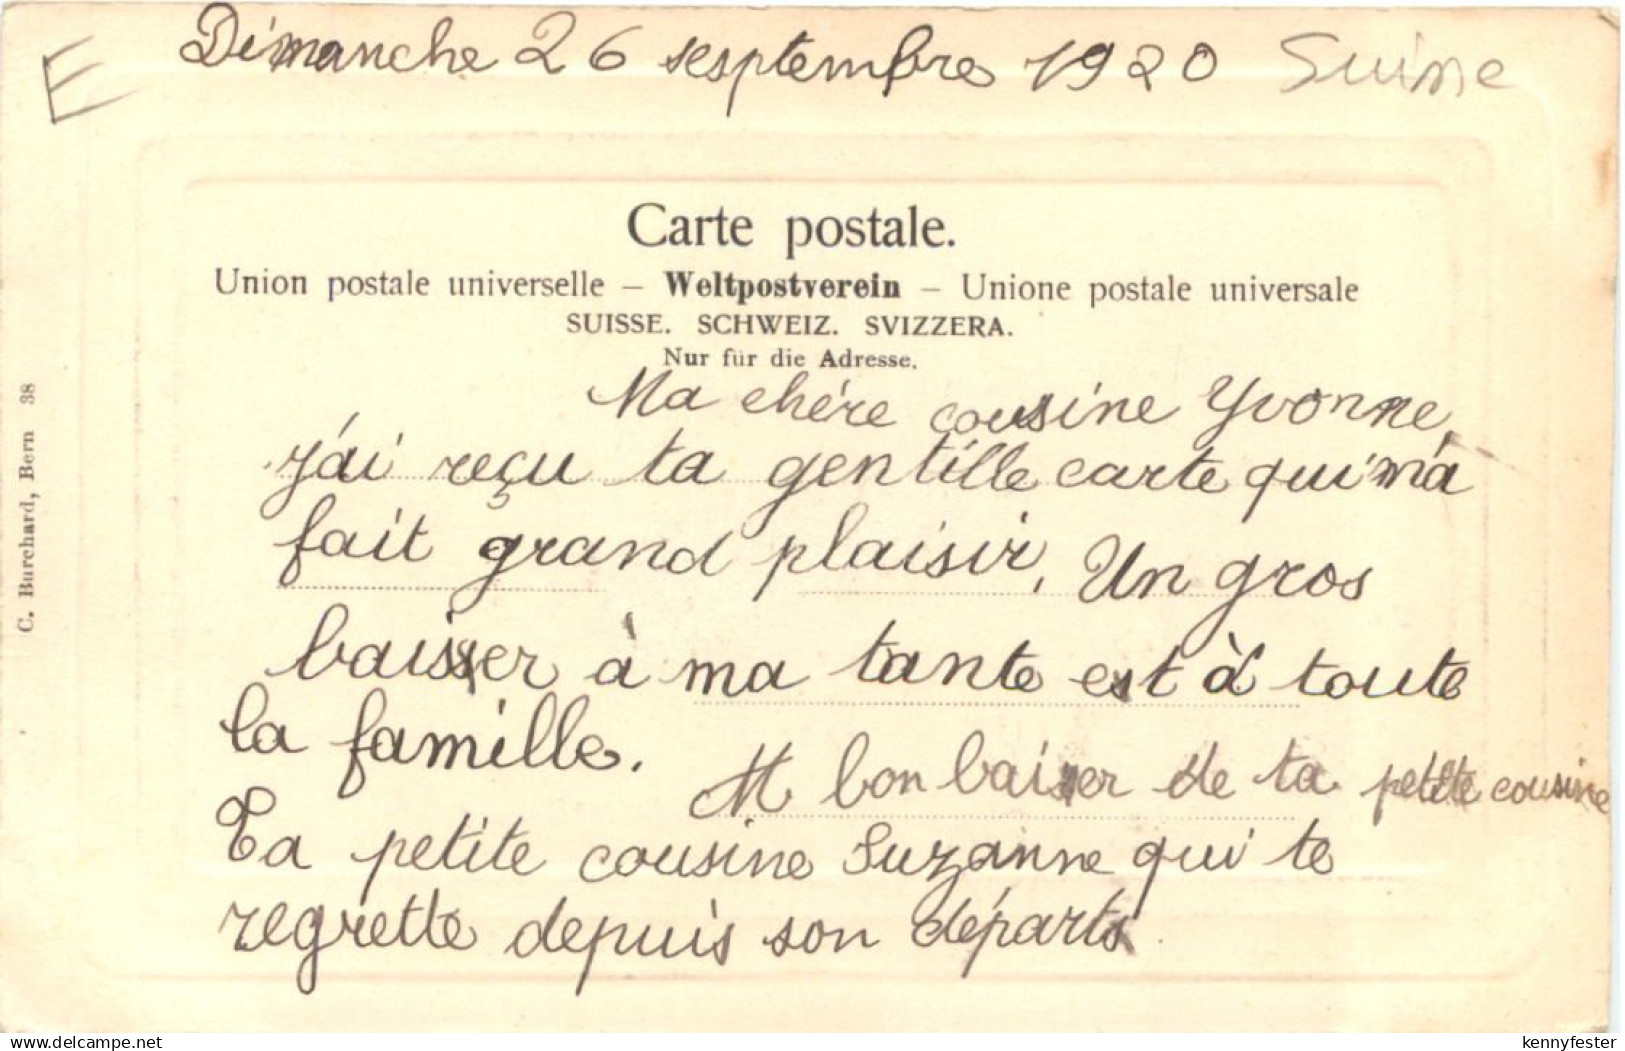 E
Dimanche 26 sesptembre 1920 Suisse
Carte postale.
Union postale universelle – Weltpostverein – Unione postale universale
SUISSE. SCHWEIZ. SVIZZERA.
Nur für die Adresse.
C. Burchard, Bern 38
Ma chére cousine Yvonne,
j'ai reçu ta gentille carte qui m'a
fait grand plaisir. Un gros
baiser à ma tante et à toute
la famille.
bon baiser de ta petite cousine
Ta petite cousine Suzanne qui te
regrette depuis son départ
www.delcampe.net
kennyfester